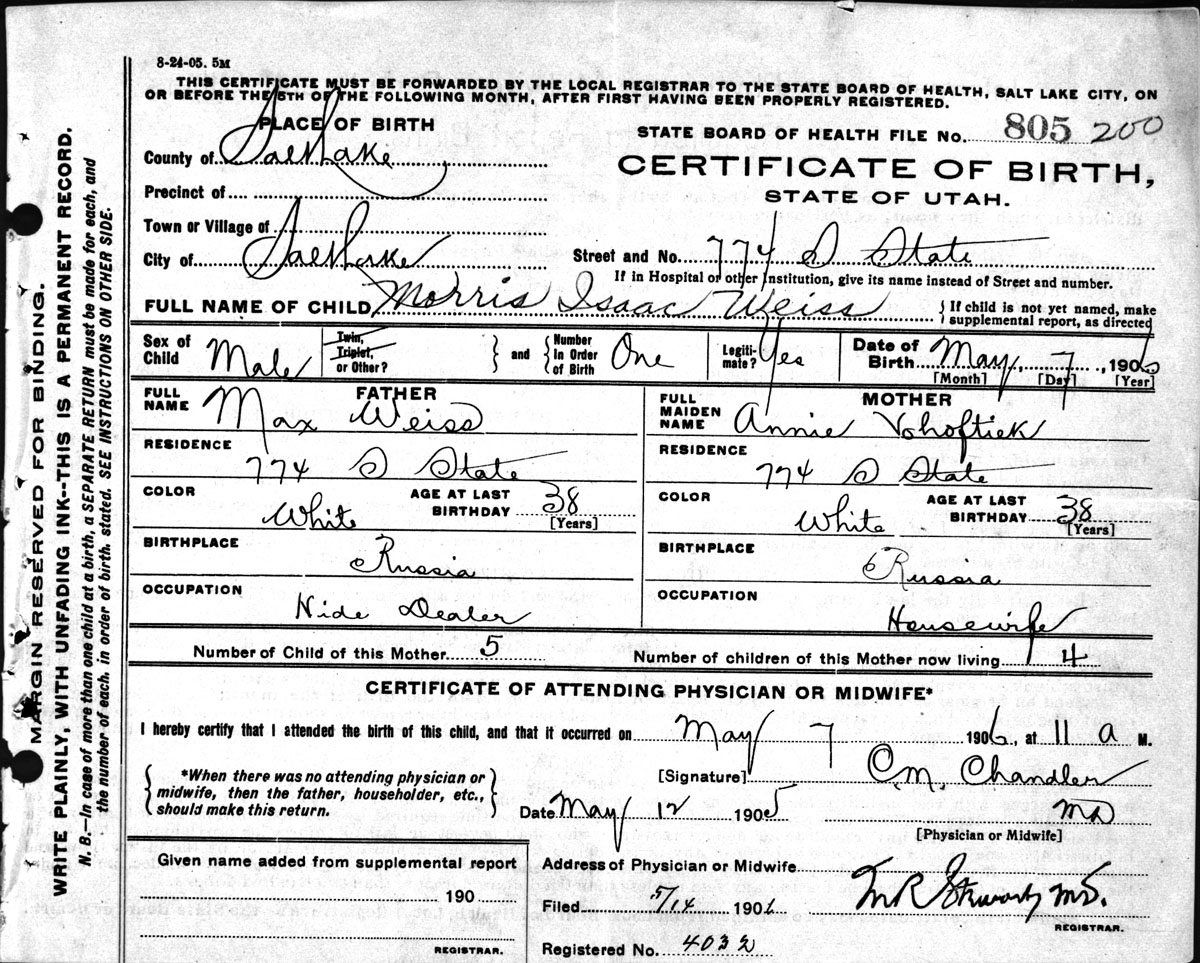 8-24-05. 5M
THIS CERTIFICATE MUST BE FORWARDED BY THE LOCAL REGISTRAR TO THE STATE BOARD OF HEALTH, SALT LAKE CITY, ON
OR BEFORE THE 5TH OF THE FOLLOWING MONTH, AFTER FIRST HAVING BEEN PROPERLY REGISTERED.
PLACE OF BIRTH
STATE BOARD OF HEALTH FILE No. 805 200
County of Salt Lake
CERTIFICATE OF BIRTH,
Precinct of
STATE OF UTAH.
Town or Village of
City of Salt Lake
Street and No. 774 S State
If in Hospital or other Institution, give its name instead of Street and number.
FULL NAME OF CHILD Morris Isaac Weiss
{ If child is not yet named, make
supplemental report, as directed
Sex of Child Male
Twin, Triplet, or Other? } and { Number in Order of Birth One
Legiti-mate? Yes
Date of Birth May 7, 1906
[Month] [Day] [Year]
FATHER
FULL NAME Max Weiss
RESIDENCE 774 S State
COLOR White
AGE AT LAST BIRTHDAY 38
[Years]
BIRTHPLACE Russia
OCCUPATION Hide Dealer
MOTHER
FULL MAIDEN NAME Annie
RESIDENCE 774 S State
COLOR White
AGE AT LAST BIRTHDAY 38
[Years]
BIRTHPLACE Russia
OCCUPATION Housewife
Number of Child of this Mother 5
Number of children of this Mother now living 4
CERTIFICATE OF ATTENDING PHYSICIAN OR MIDWIFE*
I hereby certify that I attended the birth of this child, and that it occurred on May 7 1906, at 11 a M.
{ *When there was no attending physician or
midwife, then the father, householder, etc.,
should make this return. }
[Signature] C M Chandler
Date May 12 1905
MD
[Physician or Midwife]
Given name added from supplemental report
190
REGISTRAR.
Address of Physician or Midwife
Filed 5/14 1906
M.D.
REGISTRAR.
Registered No. 4032
MARGIN RESERVED FOR BINDING.
WRITE PLAINLY, WITH UNFADING INK--THIS IS A PERMANENT RECORD.
N. B.—In case of more than one child at a birth, a SEPARATE RETURN must be made for each, and
the number of each, in order of birth, stated. SEE INSTRUCTIONS ON OTHER SIDE.